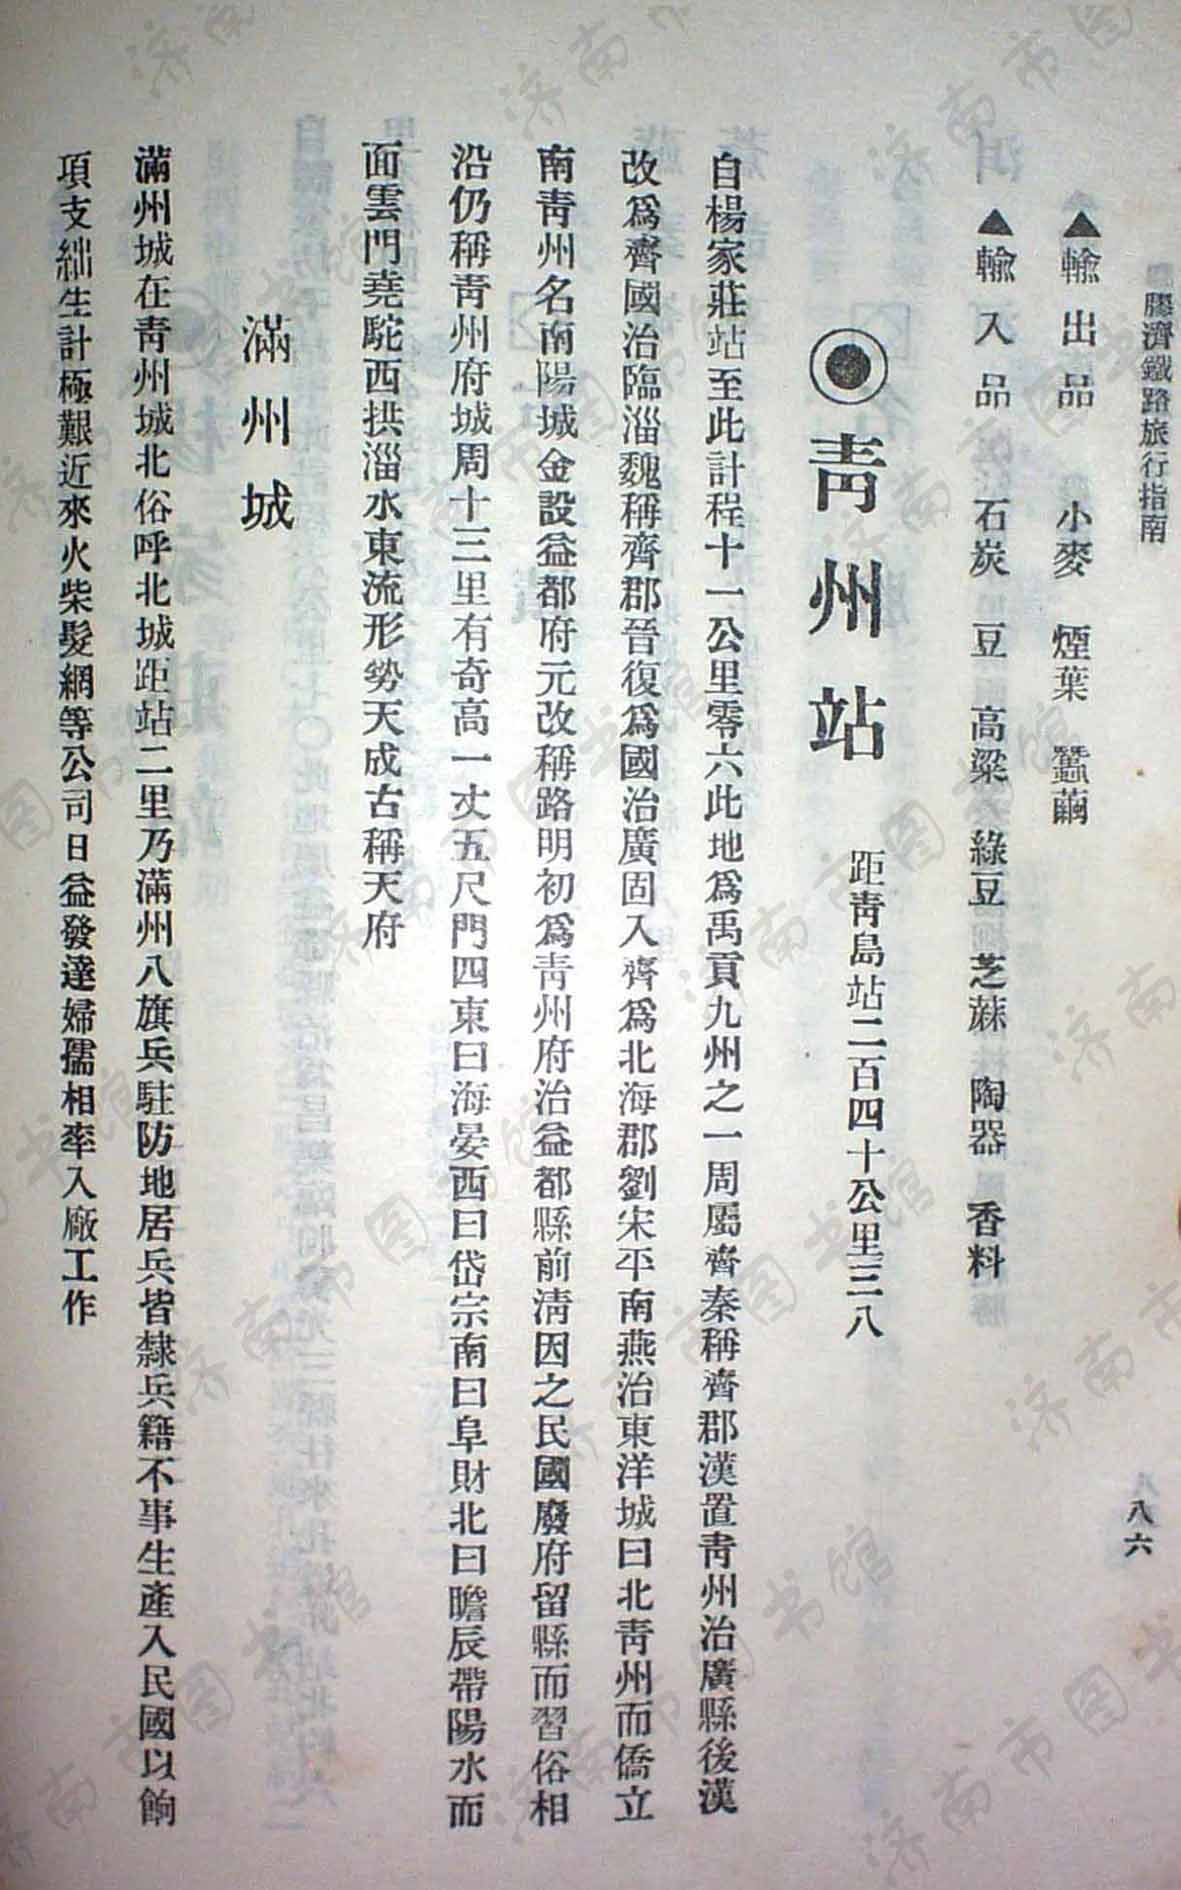 膠濟鐵路旅行指南
八六
▲輸出品 小麥 煙葉 蠶繭
▲輸入品 石炭 豆 高粱 綠豆 芝蔴 陶器 香料
◉靑州站 距靑島站二百四十公里三八
自楊家莊站至此計程十一公里零六此地爲禹貢九州之一周屬齊秦稱齊郡漢置靑州治廣縣後漢
改爲齊國治臨淄魏稱齊郡晉復爲國治廣固入齊爲北海郡劉宋平南燕治東洋城曰北靑州而僑立
南靑州名南陽城金設益都府元改稱路明初爲靑州府治益都縣前淸因之民國廢府留縣而習俗相
沿仍稱靑州府城周十三里有奇高一丈五尺門四東曰海晏西曰岱宗南曰阜財北曰瞻辰帶陽水而
面雲門堯駝西拱淄水東流形勢天成古稱天府
滿州城
滿州城在靑州城北俗呼北城距站二里乃滿州八旗兵駐防地居兵皆隸兵籍不事生產入民國以餉
項支絀生計極艱近來火柴髮網等公司日益發達婦孺相率入廠工作
济南市图书馆